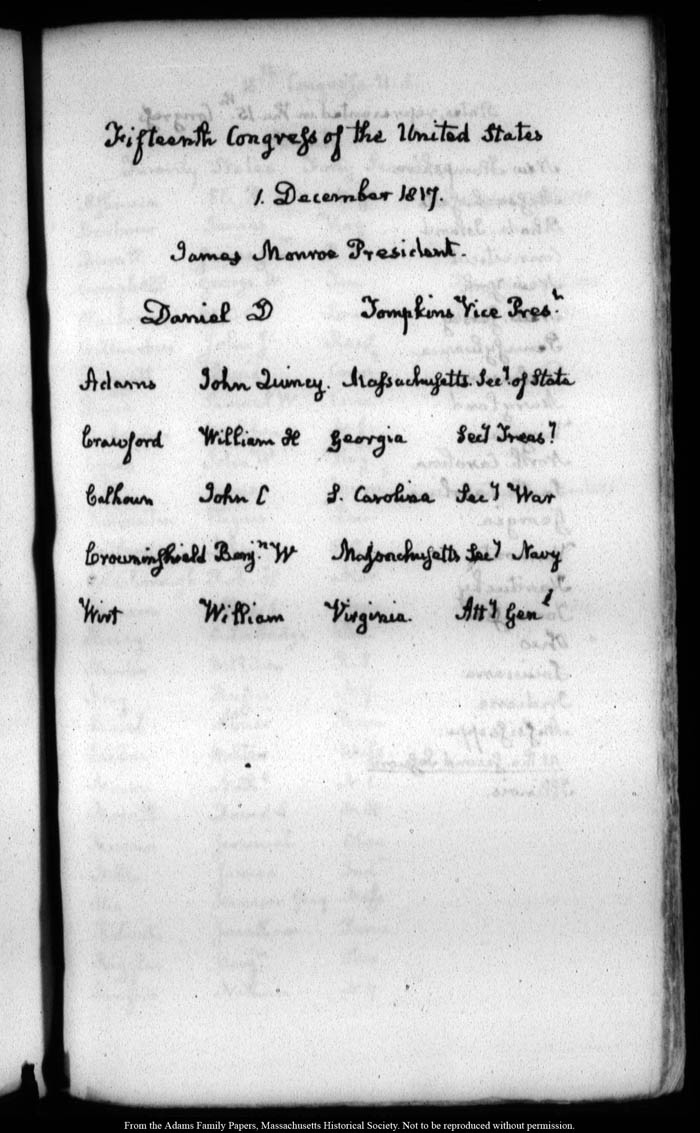 Fifteenth Congress of the United States
1. December 1817.
James Monroe President.
Daniel D Tompkins Vice Presᵗ.
Adams John Quincy. Massachusetts. Secʸ. of State
Crawford William H Georgia Secʸ Treasʸ
Calhoun John C S. Carolina Secʸ War
Crowninshield Benjⁿ W Massachusetts Secʸ Navy
Wirt William Virginia. Attʸ Genˡ
From the Adams Family Papers, Massachusetts Historical Society. Not to be reproduced without permission.